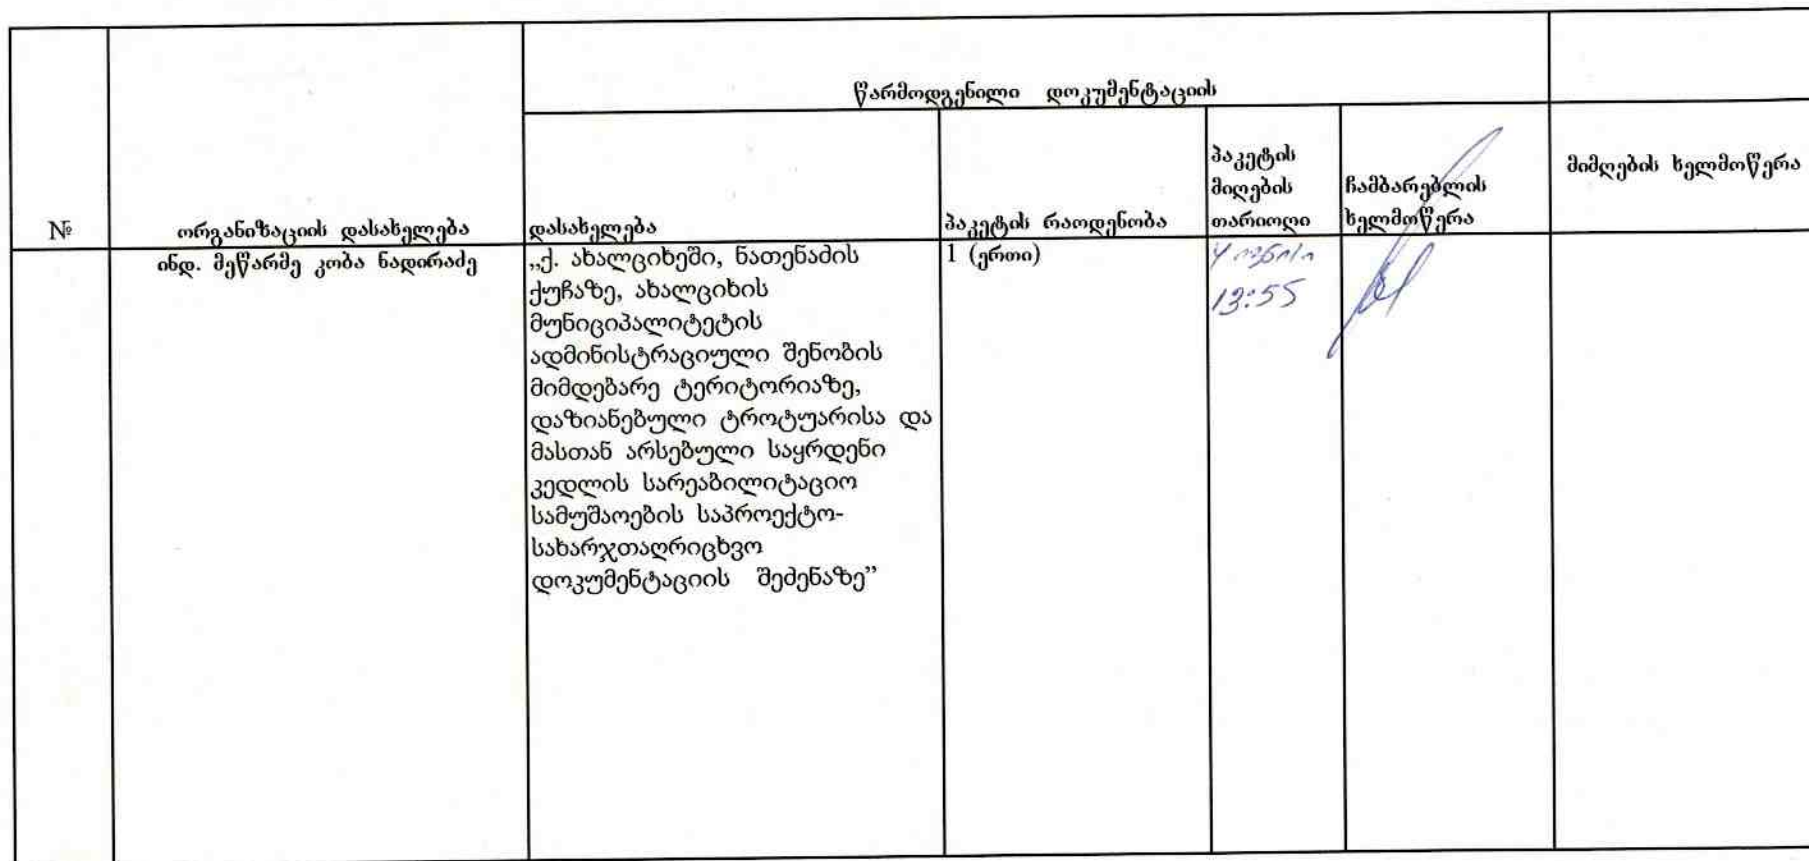 წარმოდგენილი დოკუმენტაციის
№
ორგანიზაციის დასახელება
დასახელება
პაკეტის რაოდენობა
პაკეტის
მიღების
თარიოღი
ჩამბარებლის
ხელმოწერა
მიმღების ხელმოწერა
ინდ. მეწარმე კობა ნადირაძე
„ქ. ახალციხეში, ნათენაძის
ქუჩაზე, ახალციხის
მუნიციპალიტეტის
ადმინისტრაციული შენობის
მიმდებარე ტერიტორიაზე,
დაზიანებული ტროტუარისა და
მასთან არსებული საყრდენი
კედლის სარეაბილიტაციო
სამუშაოების საპროექტო-
სახარჯთაღრიცხვო
დოკუმენტაციის შეძენაზე”
1 (ერთი)
4 ივნისი
13:55